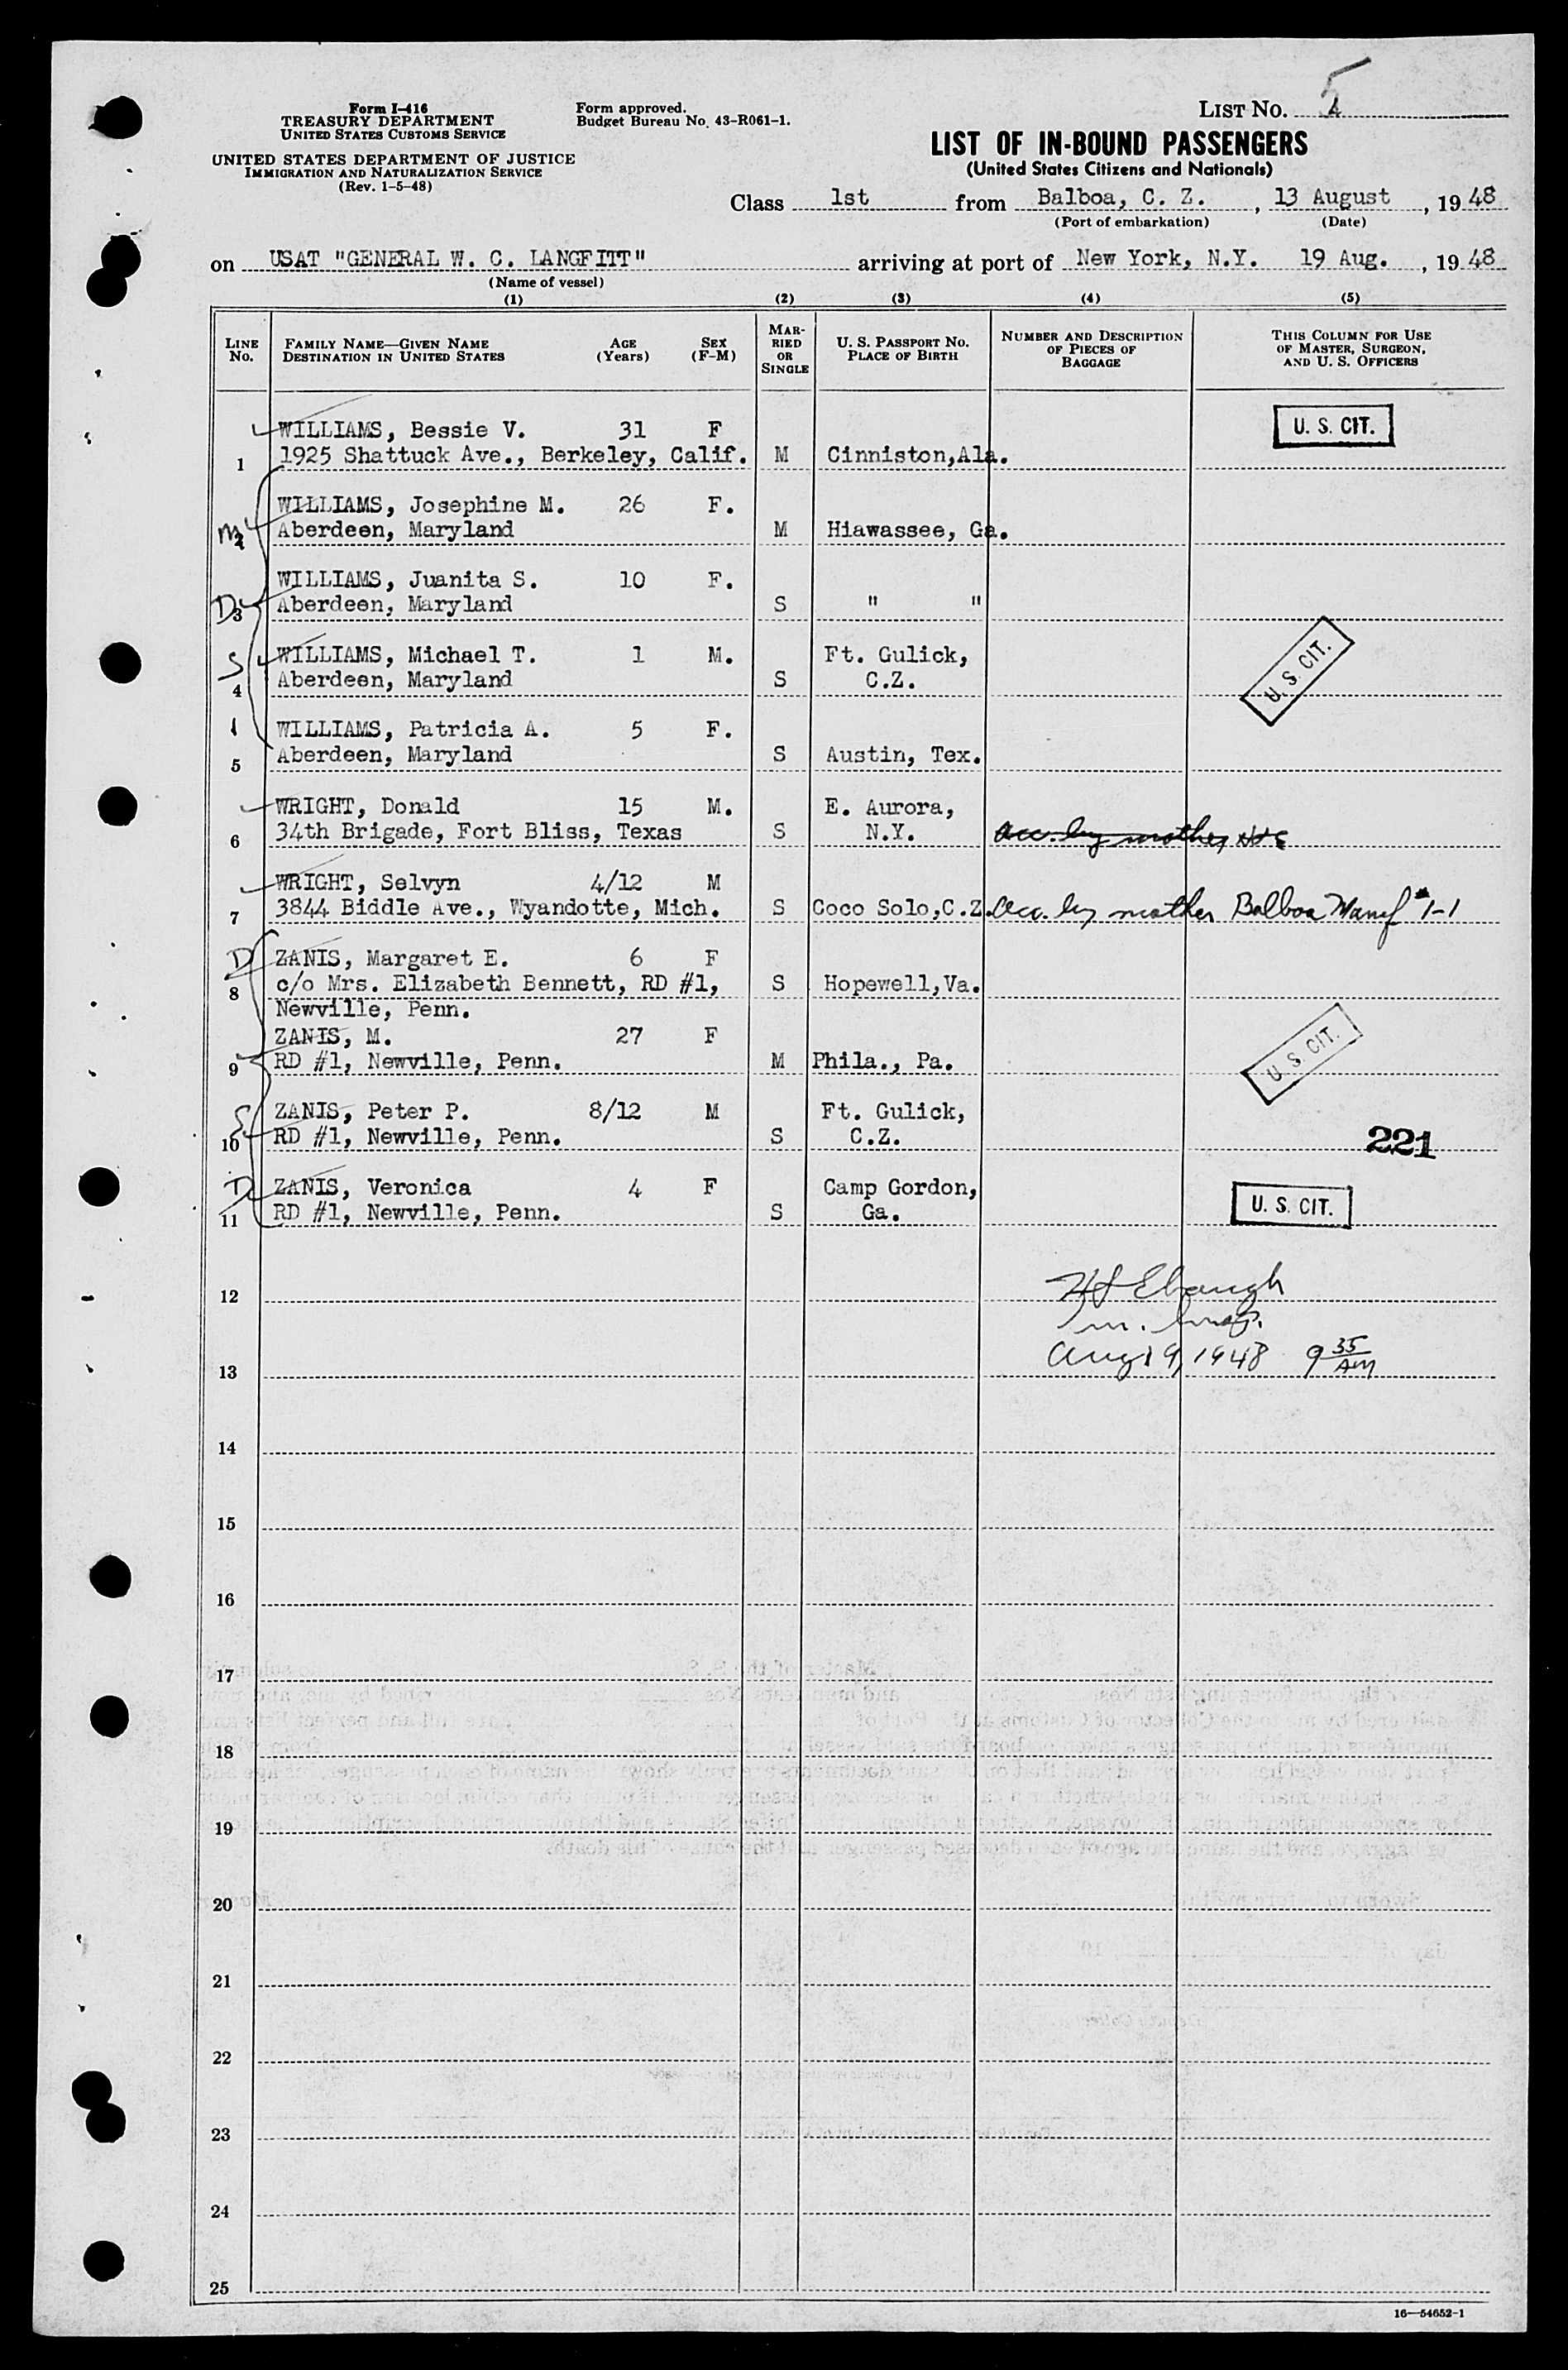 Form I-416
TREASURY DEPARTMENT
UNITED STATES CUSTOMS SERVICE
UNITED STATES DEPARTMENT OF JUSTICE
IMMIGRATION AND NATURALIZATION SERVICE
(Rev. 1-5-48)
Form approved.
Budget Bureau No. 43-R061-1.
LIST No. 5
LIST OF IN-BOUND PASSENGERS
(United States Citizens and Nationals)
Class 1st from Balboa, C. Z., 13 August, 1948
(Port of embarkation) (Date)
on USAT "GENERAL W. C. LANGFITT" arriving at port of New York, N.Y. 19 Aug., 1948
(Name of vessel)
(1) (2) (3) (4) (5)
LINE No. FAMILY NAME—GIVEN NAME DESTINATION IN UNITED STATES AGE (Years) SEX (F-M) MARRIED OR SINGLE U. S. PASSPORT No. PLACE OF BIRTH NUMBER AND DESCRIPTION OF PIECES OF BAGGAGE THIS COLUMN FOR USE OF MASTER, SURGEON, AND U. S. OFFICERS
WILLIAMS, Bessie V. 31 F U. S. CIT.
1 1925 Shattuck Ave., Berkeley, Calif. M Cinniston,Ala.
WILLIAMS, Josephine M. 26 F.
M 2 Aberdeen, Maryland M Hiawassee, Ga.
WILLIAMS, Juanita S. 10 F.
D 3 Aberdeen, Maryland S " "
S WILLIAMS, Michael T. 1 M. Ft. Gulick, U. S. CIT.
4 Aberdeen, Maryland S C.Z.
WILLIAMS, Patricia A. 5 F.
5 Aberdeen, Maryland S Austin, Tex.
WRIGHT, Donald 15 M. E. Aurora,
6 34th Brigade, Fort Bliss, Texas S N.Y. acc. by mother
WRIGHT, Selvyn 4/12 M
7 3844 Biddle Ave., Wyandotte, Mich. S Coco Solo,C.Z. acc. by mother Balboa Manf #1-1
D ZANIS, Margaret E. 6 F
8 c/o Mrs. Elizabeth Bennett, RD #1, S Hopewell,Va.
Newville, Penn.
ZANIS, M. 27 F
9 RD #1, Newville, Penn. M Phila., Pa. U. S. CIT.
S ZANIS, Peter P. 8/12 M Ft. Gulick,
10 RD #1, Newville, Penn. S C.Z. 221
D ZANIS, Veronica 4 F Camp Gordon,
11 RD #1, Newville, Penn. S Ga. U. S. CIT.
12 H S Ebaugh
Im. Insp.
13 Aug 19, 1948 9 35 AM
14
15
16
17
18
19
20
21
22
23
24
25
16—54652-1